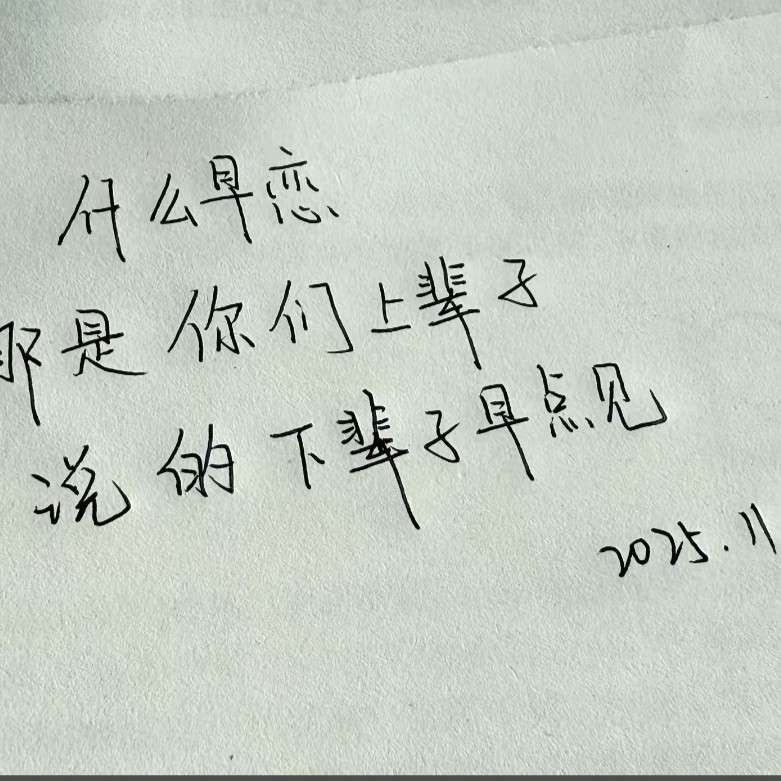 什么早恋
那是你们上辈子
说的下辈子早点见
2025.11